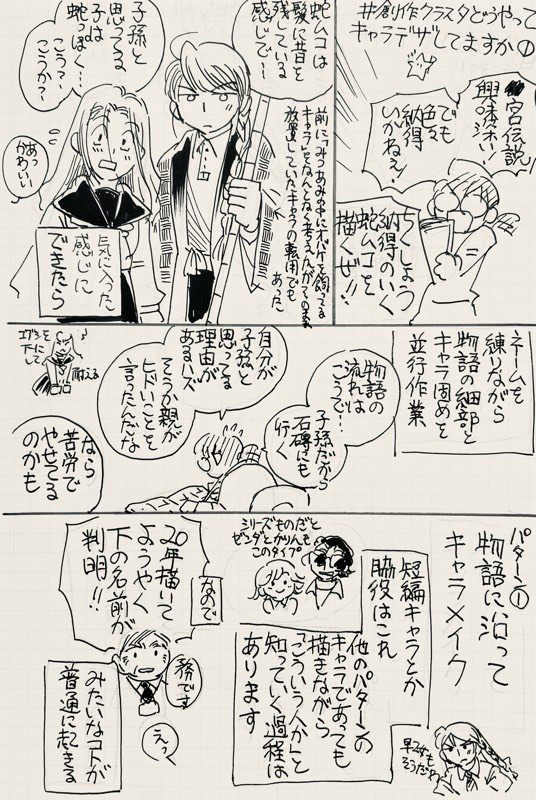 #創作クラスタどうやって
キャラデザしてますか①
宮伝説
興味深い!
でも
色々
納得
いかねぇ!
ちくしょう
納得のいく
蛇ムコを
描くぜ!!
蛇ムコは
髪に昔を
残している
感じで…
前に「みつあみの中にオバケを飼ってる
キャラ」をなんとなく考えたんだがそのまま
放置していたキャラの転用でも
あった
子孫と
思ってる
子は
蛇っぽく…
こう?
こうか?
あっ
かわいい
気に入った
感じに
できたら
ネームを
練りながら
物語の細部と
キャラ固めを
並行作業
物語の
流れは
こうで…
子孫だから
石碑にも
行く
自分が
子孫と
思ってる
理由が
あるハズ
そうか親が
ヒドいことを
言ったんだな
なら
苦労で
やせてる
のかも
エプロンを
下にして
耐える
パターン①
物語に沿って
キャラメイク
短編キャラとか
脇役はこれ
シリーズものだと
ゼンダとかりんも
このタイプ
他のパターンの
キャラであっても
描きながら
「こういう人か」と
知っていく過程は
あります
なので
20年描いて
ようやく
下の名前が
判明!!
務です
えっ
みたいなコトが
普通に起きる